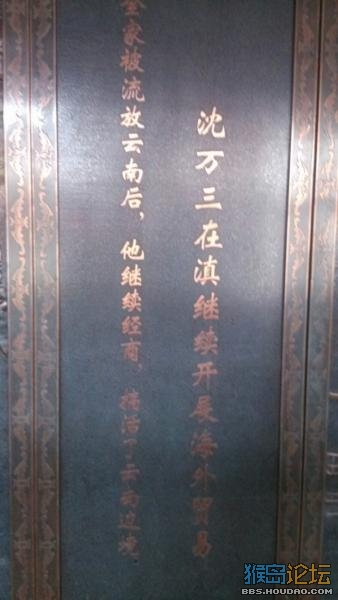 沈万三在滇继续开展海外贸易
全家被流放云南后，他继续经商，搞活了云南边境
猴岛论坛
BBS.HOUDAO.COM